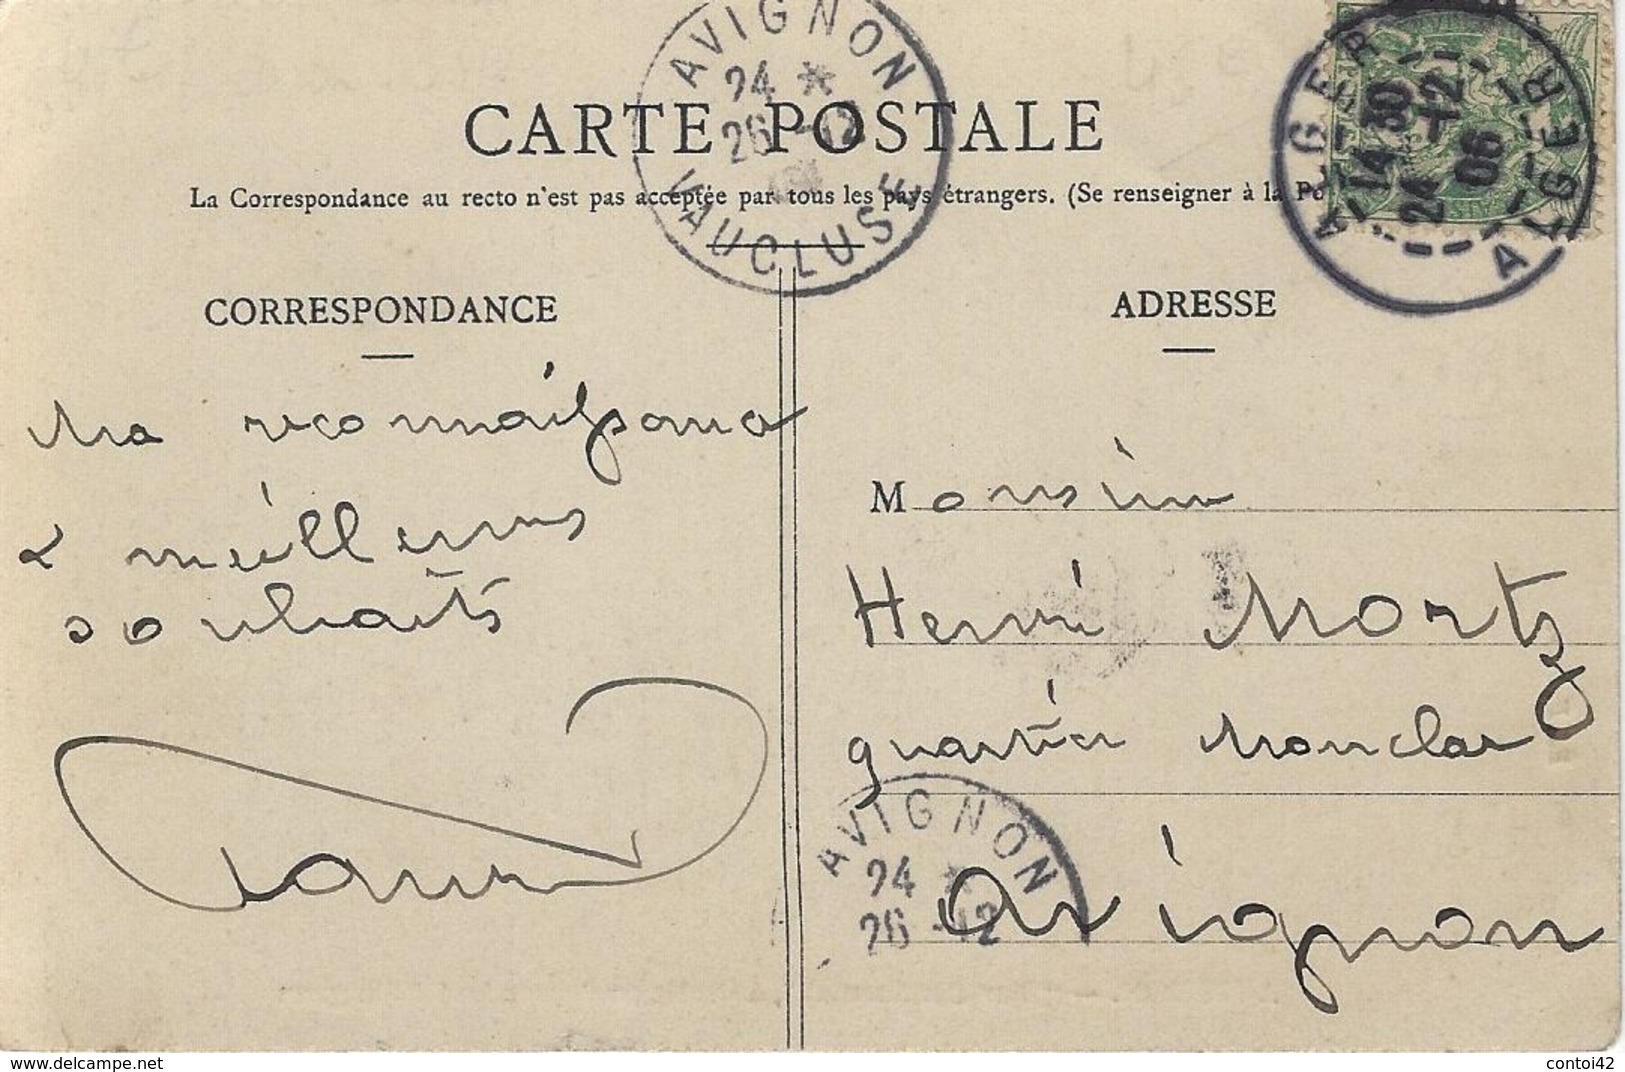 AVIGNON
24 *
26 -12
VAUCLUSE
ALGER
14 30
24 -12
06
ALGER
CARTE POSTALE
La Correspondance au recto n'est pas acceptée par tous les pays étrangers. (Se renseigner à la Po
CORRESPONDANCE
Ma reconnaissance
& meilleurs
souhaits
ADRESSE
Monsieur
Henri Mortz
quartier Monclar
Avignon
AVIGNON
24 *
26 -12
www.delcampe.net
contoi42